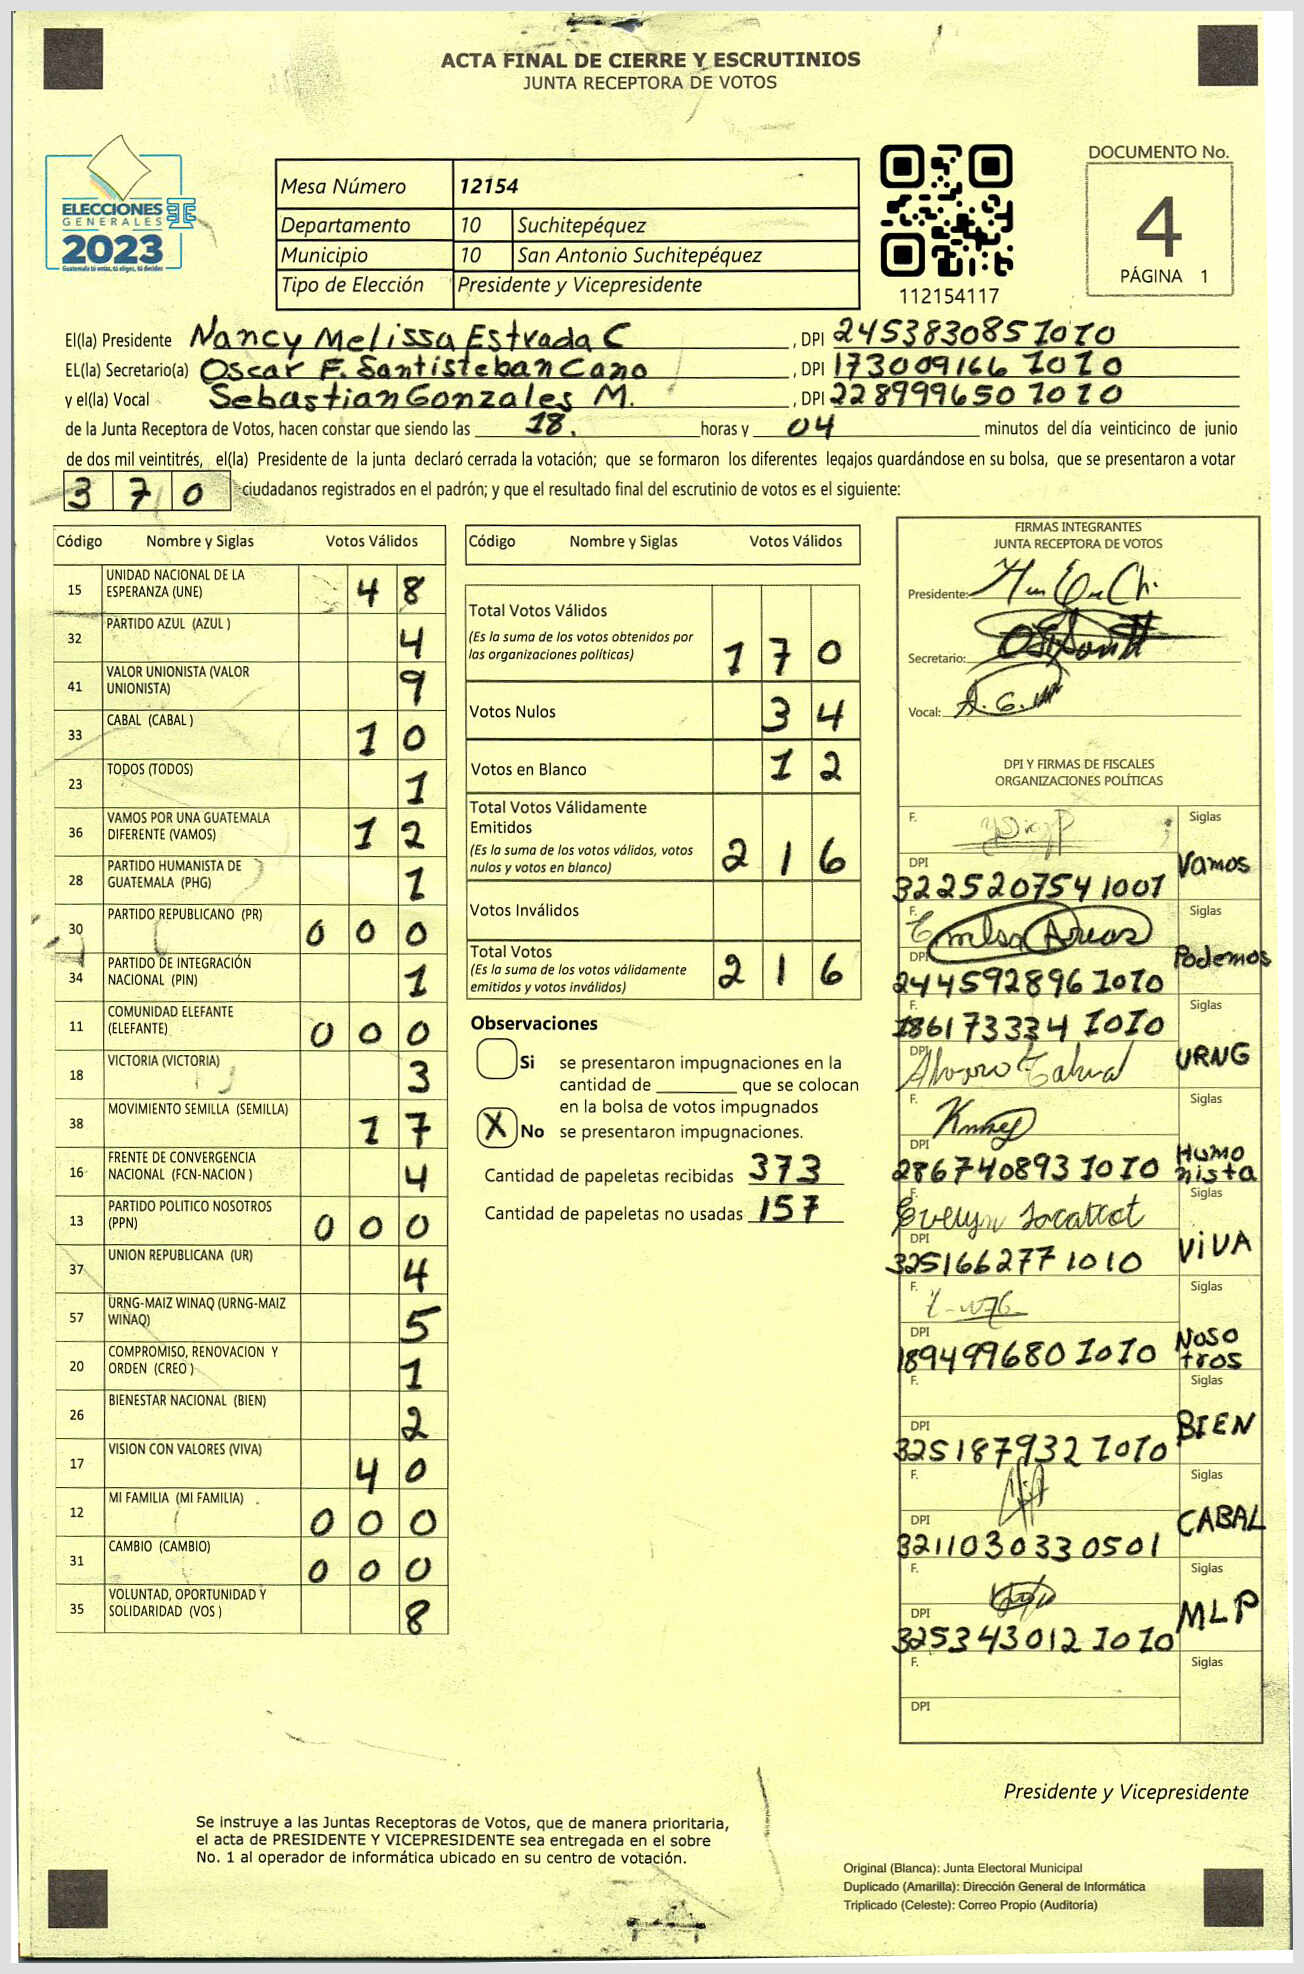 ACTA FINAL DE CIERRE Y ESCRUTINIOS
JUNTA RECEPTORA DE VOTOS
ELECCIONES
GENERALES
2023
Guatemala tú votas, tú eliges, tú decides
Mesa Número 12154
Departamento 10 Suchitepéquez
Municipio 10 San Antonio Suchitepéquez
Tipo de Elección Presidente y Vicepresidente
112154117
DOCUMENTO No.
4
PÁGINA 1
El(la) Presidente Nancy Melissa Estrada C, DPI 2453830851010
EL(la) Secretario(a) Oscar F. Santisteban Cano, DPI 1730091661010
y el(la) Vocal Sebastian Gonzales M., DPI 2289996501010
de la Junta Receptora de Votos, hacen constar que siendo las 18. horas y 04 minutos del día veinticinco de junio
de dos mil veintitrés, el(la) Presidente de la junta declaró cerrada la votación; que se formaron los diferentes legajos guardándose en su bolsa, que se presentaron a votar
370 ciudadanos registrados en el padrón; y que el resultado final del escrutinio de votos es el siguiente:
Código Nombre y Siglas Votos Válidos
15 UNIDAD NACIONAL DE LA ESPERANZA (UNE) 48
32 PARTIDO AZUL (AZUL ) 4
41 VALOR UNIONISTA (VALOR UNIONISTA) 9
33 CABAL (CABAL ) 10
23 TODOS (TODOS) 1
36 VAMOS POR UNA GUATEMALA DIFERENTE (VAMOS) 12
28 PARTIDO HUMANISTA DE GUATEMALA (PHG) 1
30 PARTIDO REPUBLICANO (PR) 000
34 PARTIDO DE INTEGRACIÓN NACIONAL (PIN) 1
11 COMUNIDAD ELEFANTE (ELEFANTE) 000
18 VICTORIA (VICTORIA) 3
38 MOVIMIENTO SEMILLA (SEMILLA) 17
16 FRENTE DE CONVERGENCIA NACIONAL (FCN-NACION ) 4
13 PARTIDO POLITICO NOSOTROS (PPN) 000
37 UNION REPUBLICANA (UR) 4
57 URNG-MAIZ WINAQ (URNG-MAIZ WINAQ) 5
20 COMPROMISO, RENOVACION Y ORDEN (CREO ) 1
26 BIENESTAR NACIONAL (BIEN) 2
17 VISION CON VALORES (VIVA) 40
12 MI FAMILIA (MI FAMILIA) 000
31 CAMBIO (CAMBIO) 000
35 VOLUNTAD, OPORTUNIDAD Y SOLIDARIDAD (VOS ) 8
Código Nombre y Siglas Votos Válidos
Total Votos Válidos 170
(Es la suma de los votos obtenidos por
las organizaciones políticas)
Votos Nulos 34
Votos en Blanco 12
Total Votos Válidamente
Emitidos 216
(Es la suma de los votos válidos, votos
nulos y votos en blanco)
Votos Inválidos
Total Votos 216
(Es la suma de los votos válidamente
emitidos y votos inválidos)
Observaciones
Si se presentaron impugnaciones en la
cantidad de que se colocan
en la bolsa de votos impugnados
X No se presentaron impugnaciones.
Cantidad de papeletas recibidas 373
Cantidad de papeletas no usadas 157
FIRMAS INTEGRANTES
JUNTA RECEPTORA DE VOTOS
Presidente:
Secretario:
Vocal:
DPI Y FIRMAS DE FISCALES
ORGANIZACIONES POLÍTICAS
F. Siglas
DPI 3225207541001 Vamos
F. Siglas
DPI 2445928961010 Podemos
Siglas
186173334 1010
DPI URNG
F. Siglas
DPI 2867408931010 Humo
nista
F. Evelyn Siglas
DPI 3251662771010 ViVA
F. Siglas
DPI 1894996801010 Noso
tros
F. Siglas
DPI 3251879321010 BIEN
F. Siglas
DPI 3211030330501 CABAL
F. Siglas
DPI 3253430121010 MLP
F. Siglas
DPI
Presidente y Vicepresidente
Se instruye a las Juntas Receptoras de Votos, que de manera prioritaria,
el acta de PRESIDENTE Y VICEPRESIDENTE sea entregada en el sobre
No. 1 al operador de informática ubicado en su centro de votación.
Original (Blanca): Junta Electoral Municipal
Duplicado (Amarilla): Dirección General de Informática
Triplicado (Celeste): Correo Propio (Auditoría)